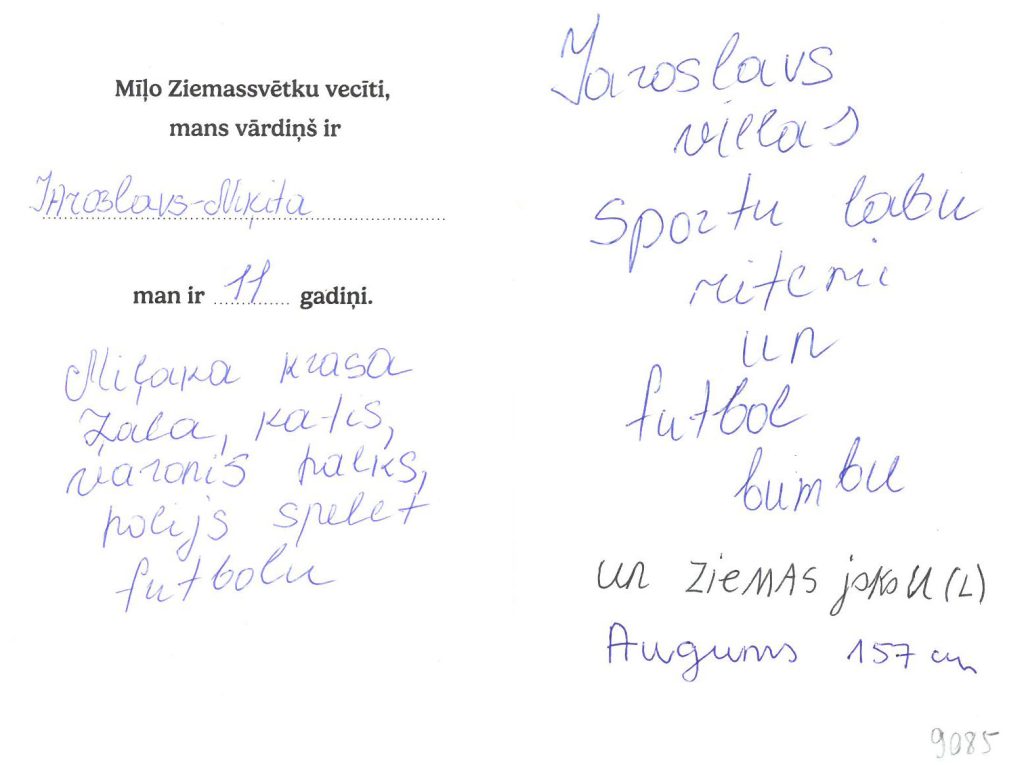 Mīļo Ziemassvētku vecīti,
mans vārdiņš ir
Jaroslavs-Ņikita
man ir 11 gadiņi.
Miļaka krasa
Zaļa, katis,
varonis palks,
polijs spelet
futbolu
Jaroslavs
vēlas
sportu labu
riteni
un
futbol
bumbu
un ziemas jaku (L)
Augums 157 cm
9085